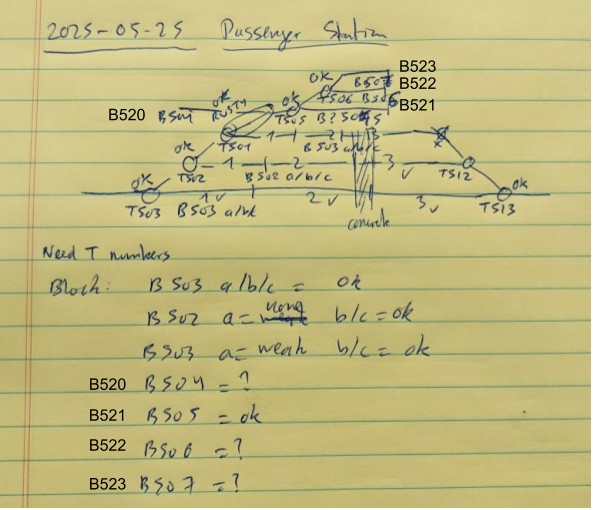 2025-05-25 Passenger Station
B523
OK B507
B522
T506 B506
B521
B520 B504 OK
OK T505 B505
T501 1 2 3
B503 a/b/c
OK
T502 1 2 3 v
B502 a/b/c T512
OK OK
T503 1 v 2 v 3 v T513
B503 a/b/c
concrete
Need T numbers
Block: B503 a/b/c = ok
B502 a= none b/c = ok
B503 a= weak b/c = ok
B520 B504 = ?
B521 B505 = ok
B522 B506 = ?
B523 B507 = ?